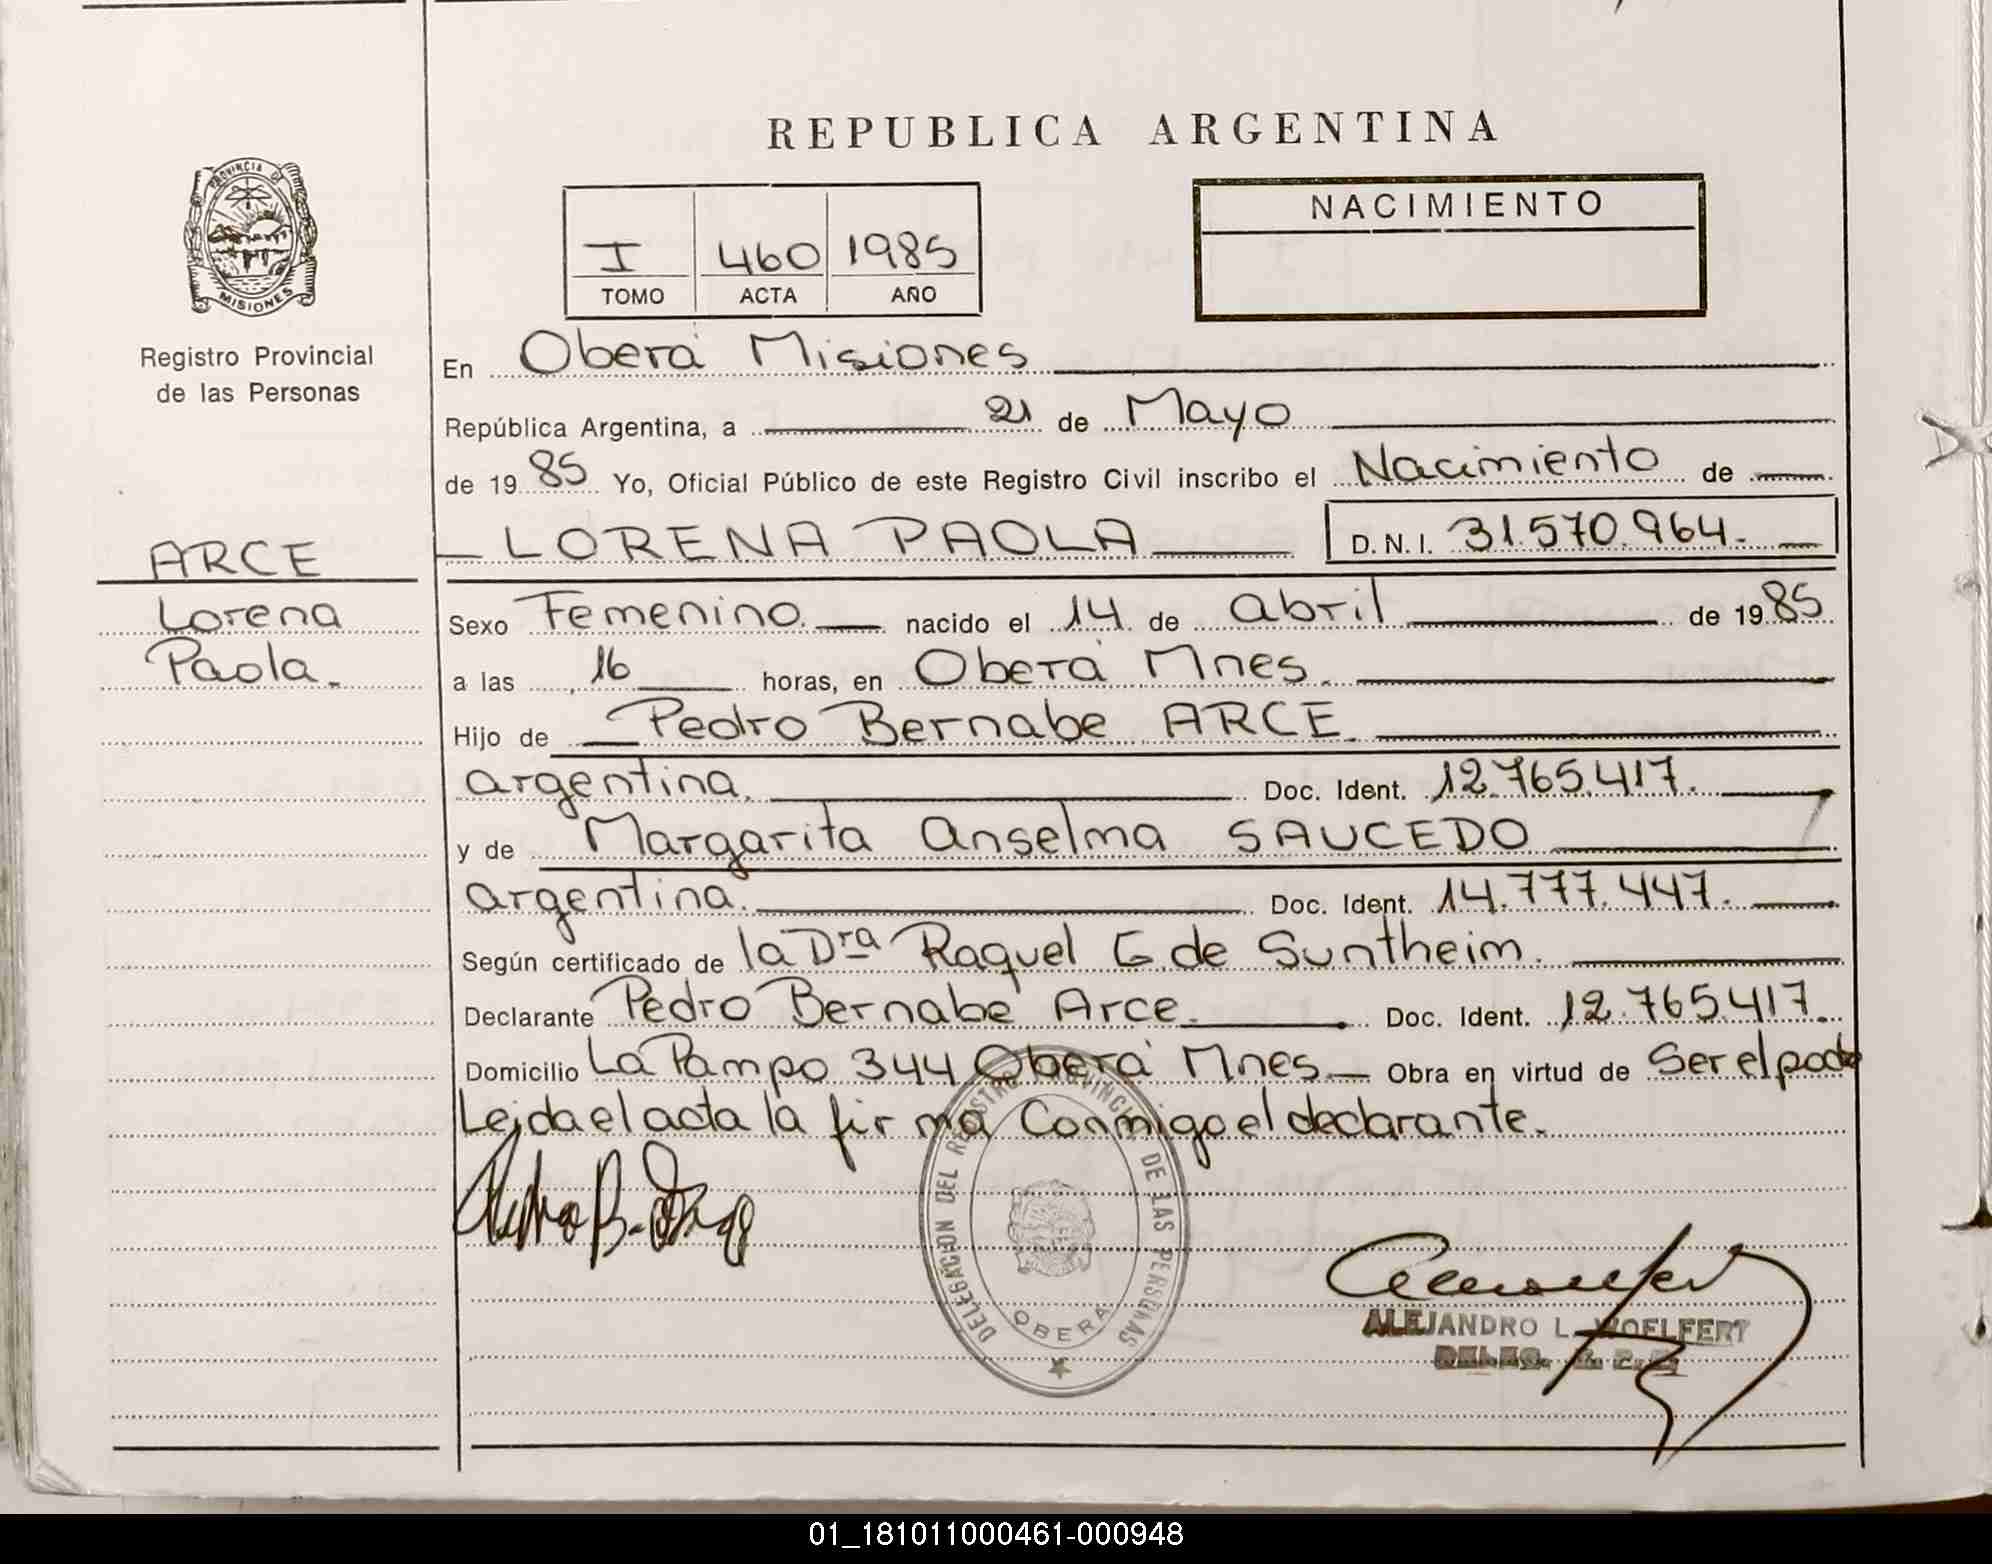 REPUBLICA ARGENTINA
PROVINCIA DE
MISIONES
Registro Provincial
de las Personas
I 460 1985
TOMO ACTA AÑO
NACIMIENTO
En Oberá Misiones
República Argentina, a 21 de Mayo
de 1985 Yo, Oficial Público de este Registro Civil inscribo el Nacimiento de
ARCE
Lorena
Paola.
LORENA PAOLA D.N.I. 31.570.964.
Sexo Femenino. nacido el 14 de abril de 1985
a las 16 horas, en Oberá Mnes.
Hijo de Pedro Bernabe ARCE.
argentina. Doc. Ident. 12.765.417.
y de Margarita Anselma SAUCEDO
argentina. Doc. Ident. 14.777.447.
Según certificado de la Dra Raquel G. de Suntheim.
Declarante Pedro Bernabé Arce. Doc. Ident. 12.765.417.
Domicilio La Pampo 344 Oberá Mnes. Obra en virtud de Ser el padre
Leida el acta la firma Conmigo el declarante.
DELEGACION DEL REGISTRO PROVINCIAL DE LAS PERSONAS
OBERA
ALEJANDRO L. WOELFERT
DELEG. R. P. P.
01_181011000461-000948